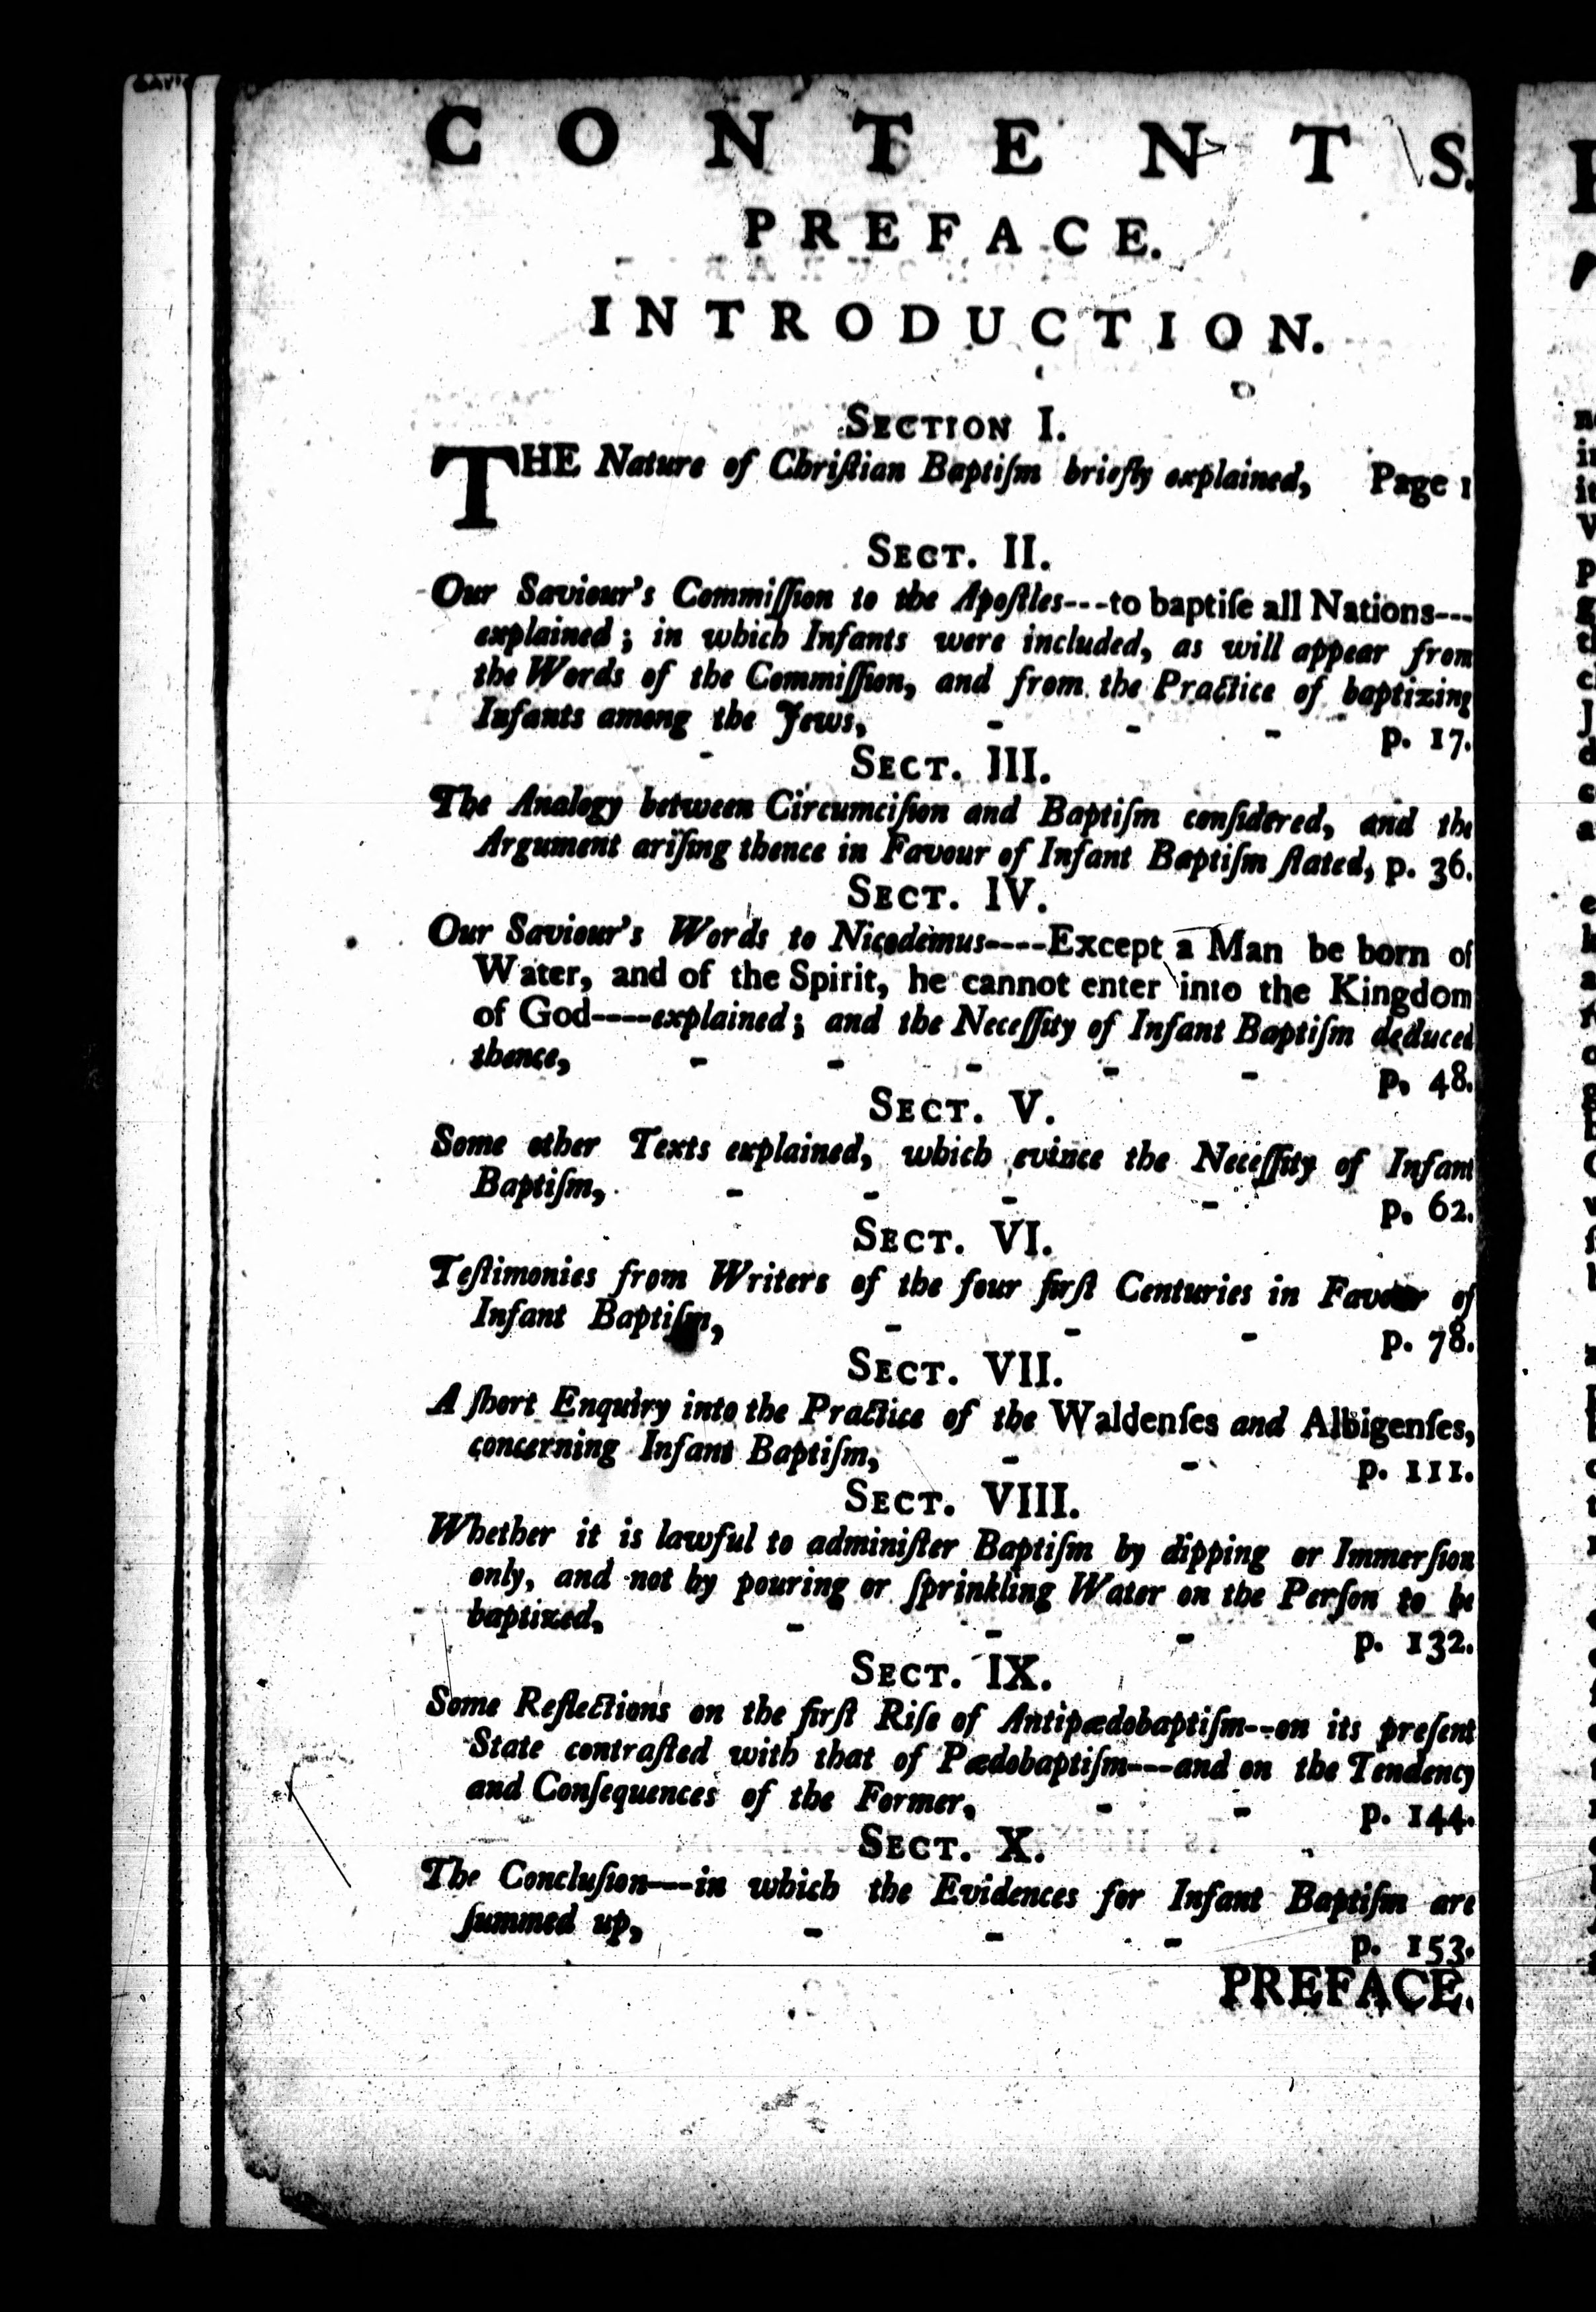 CONTENTS.
PREFACE.
INTRODUCTION.
SECTION I.
THE Nature of Chriſtian Baptiſm briefly explained, Page 1
SECT. II.
Our Saviour's Commiſſion to the Apoſtles---to baptiſe all Nations---
explained; in which Infants were included, as will appear from
the Words of the Commiſſion, and from the Practice of baptizing
Infants among the Jews, - - - p. 17.
SECT. III.
The Analogy between Circumciſion and Baptiſm conſidered, and the
Argument ariſing thence in Favour of Infant Baptiſm ſtated, p. 36.
SECT. IV.
Our Saviour's Words to Nicodemus----Except a Man be born of
Water, and of the Spirit, he cannot enter into the Kingdom
of God----explained; and the Neceſſity of Infant Baptiſm deduced
thence, - - - - - p. 48.
SECT. V.
Some other Texts explained, which evince the Neceſſity of Infant
Baptiſm, - - - - p. 62.
SECT. VI.
Teſtimonies from Writers of the four firſt Centuries in Favour of
Infant Baptiſm, - - - p. 78.
SECT. VII.
A ſhort Enquiry into the Practice of the Waldenſes and Albigenſes,
concerning Infant Baptiſm, - - p. 111.
SECT. VIII.
Whether it is lawful to adminiſter Baptiſm by dipping or Immerſion
only, and not by pouring or ſprinkling Water on the Perſon to be
baptized, - - - p. 132.
SECT. IX.
Some Reflections on the firſt Riſe of Antipædobaptiſm---on its preſent
State contraſted with that of Pædobaptiſm---and on the Tendency
and Conſequences of the Former, - - p. 144.
SECT. X.
The Concluſion---in which the Evidences for Infant Baptiſm are
ſummed up, - - - p. 153.
PREFACE.